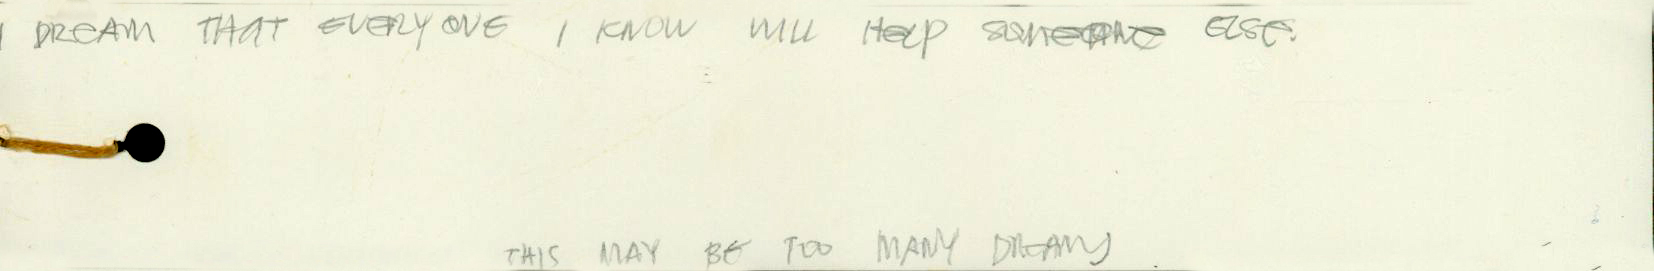 I DREAM THAT EVERYONE I KNOW WILL HELP SOMEONE ELSE.
THIS MAY BE TOO MANY DREAMS